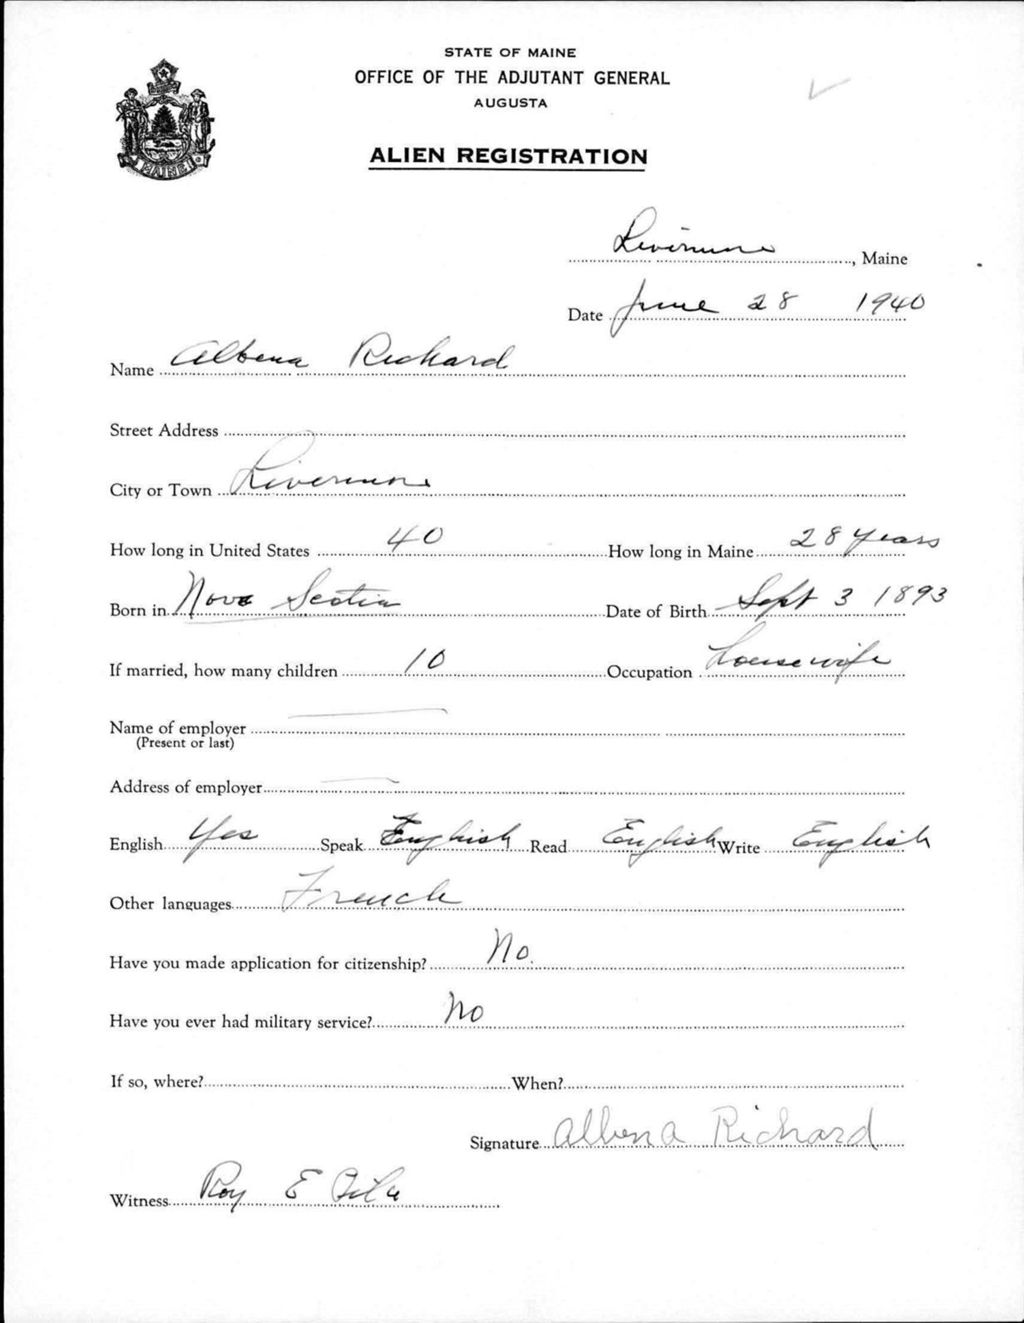 STATE OF MAINE
OFFICE OF THE ADJUTANT GENERAL
AUGUSTA
ALIEN REGISTRATION
MAINE
Livermore, Maine
Date June 28 1940
Name Albena Richard
Street Address
City or Town Livermore
How long in United States 40 How long in Maine 28 years
Born in Nova Scotia Date of Birth Sept 3 1893
If married, how many children 10 Occupation housewife
Name of employer
(Present or last)
Address of employer
English Yes Speak English Read English Write English
Other languages French
Have you made application for citizenship? No.
Have you ever had military service? No
If so, where? When?
Signature Albena Richard
Witness Roy E